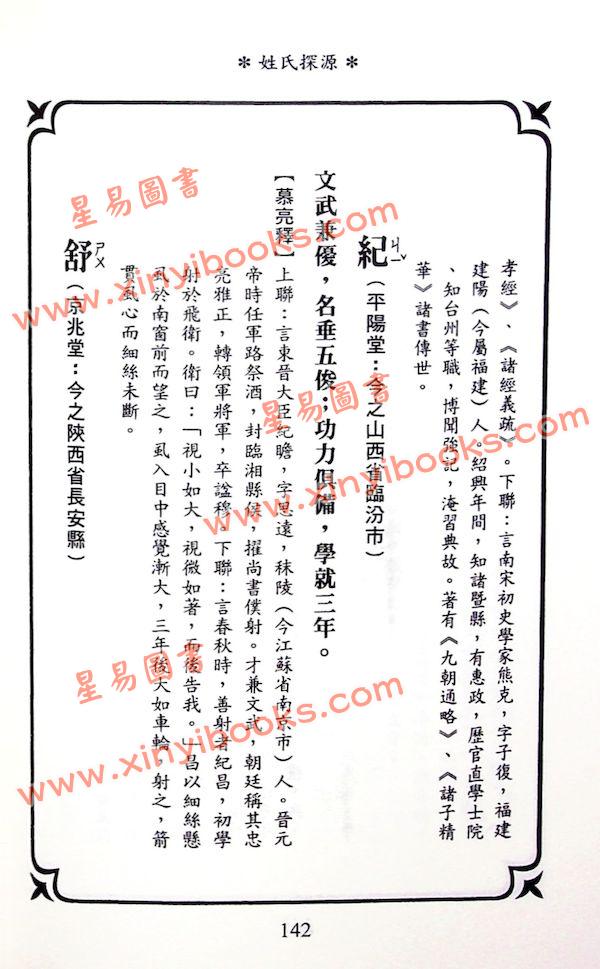 ＊姓氏探源＊
孝經》、《諸經義疏》。下聯：言南宋初史學家熊克，字子復，福建
建陽（今屬福建）人。紹興年間，知諸暨縣，有惠政，歷官直學士院
、知台州等職，博聞強記，淹習典故。著有《九朝通略》、《諸子精
華》諸書傳世。
紀ㄐㄧˇ（平陽堂：今之山西省臨汾市）
文武兼優，名垂五俊；功力俱備，學就三年。
【慕亮釋】上聯：言東晉大臣紀瞻，字思遠，秣陵（今江蘇省南京市）人。晉元
帝時任軍路祭酒，封臨湘縣侯，擢尚書僕射。才兼文武，朝廷稱其忠
亮雅正，轉領軍將軍，卒諡穆。下聯：言春秋時，善射者紀昌，初學
射於飛衛。衛曰：「視小如大，視微如著，而後告我。」昌以細絲懸
虱於南窗前而望之，虱入目中感覺漸大，三年後大如車輪，射之，箭
貫虱心而細絲未斷。
舒ㄕㄨ（京兆堂：今之陝西省長安縣）
142
星易圖書
www.xinyibooks.com
星易圖書
www.xinyibooks.com
星易圖書
www.xinyibooks.com
星易圖書
www.xinyibooks.com